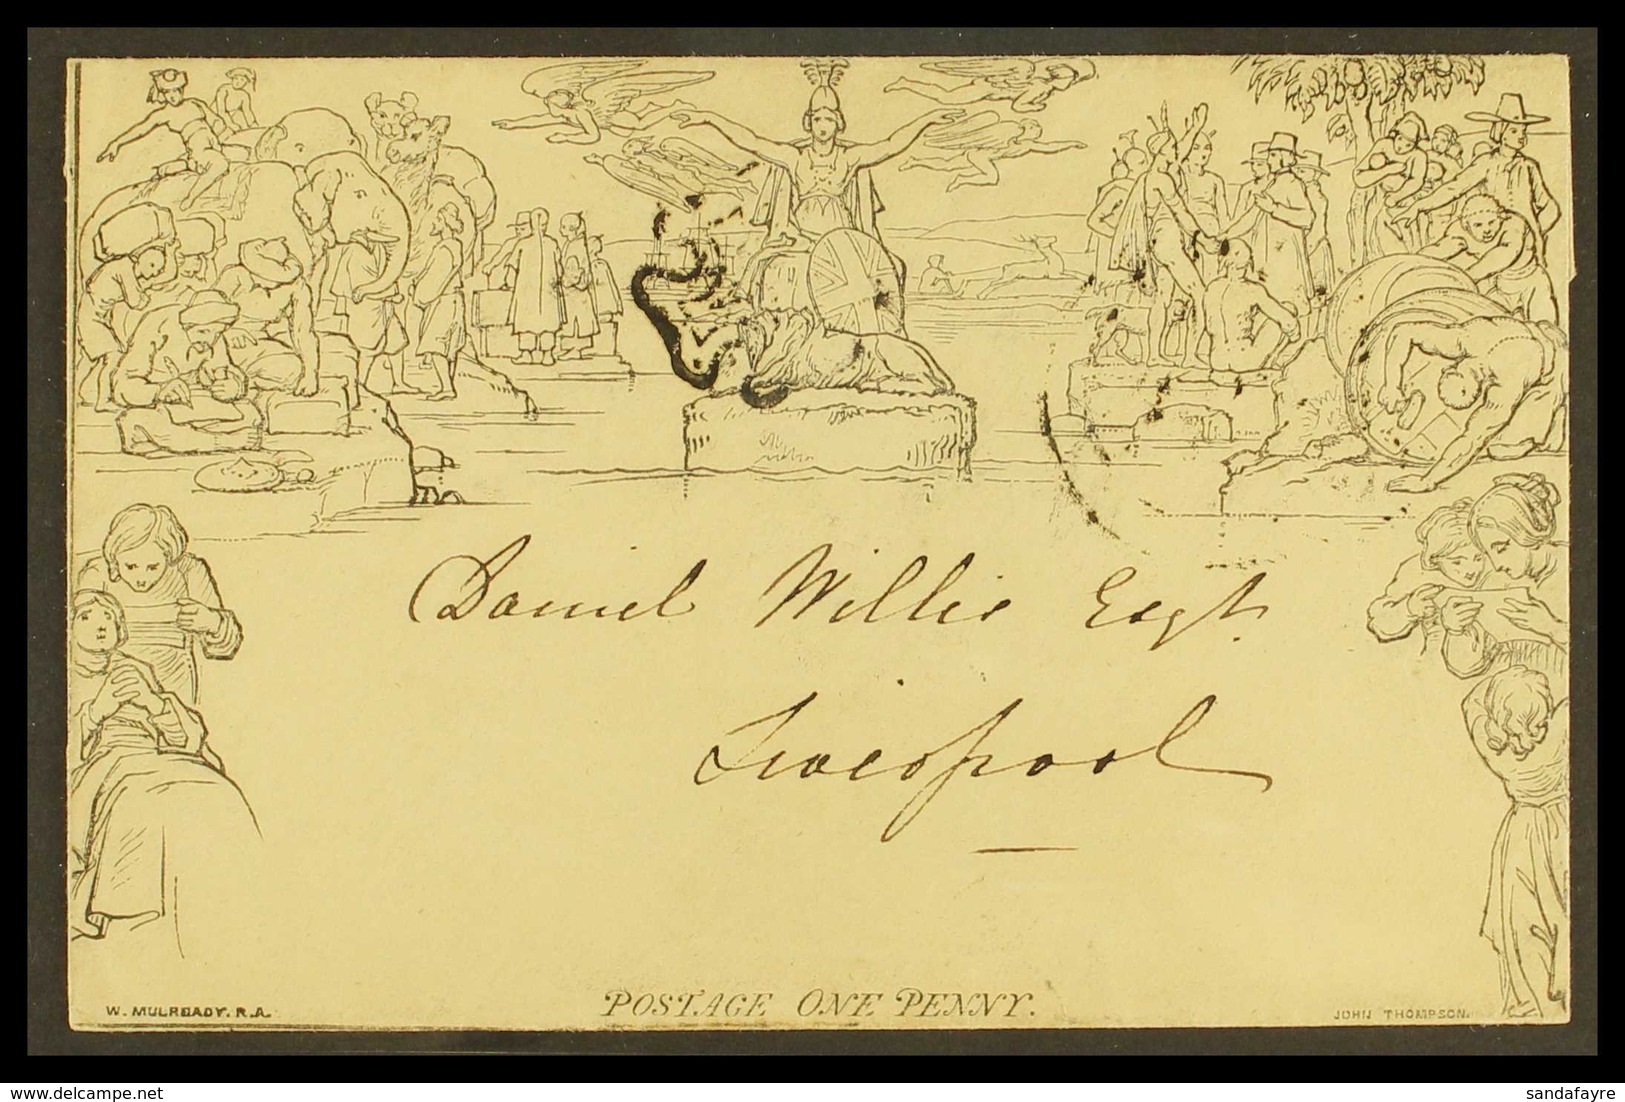 Daniel Willis Esqr.
Liverpool
POSTAGE ONE PENNY.
W. MULREADY. R.A.
JOHN THOMPSON.
www.delcampe.net
sandafayre